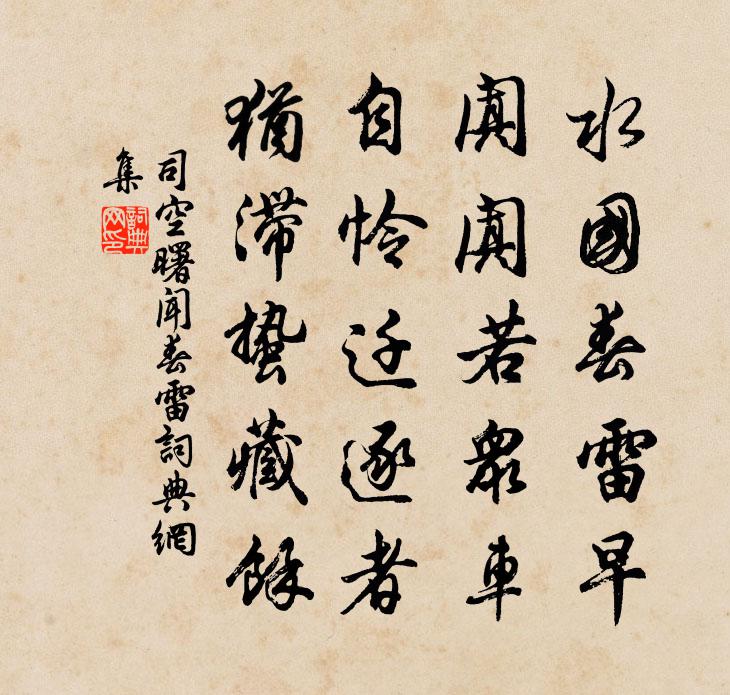 水國春雷早
闐闐若衆車
自怜迁逐者
猶滯蟄藏餘
司空曙聞春雷詞典網
集
詞典网印